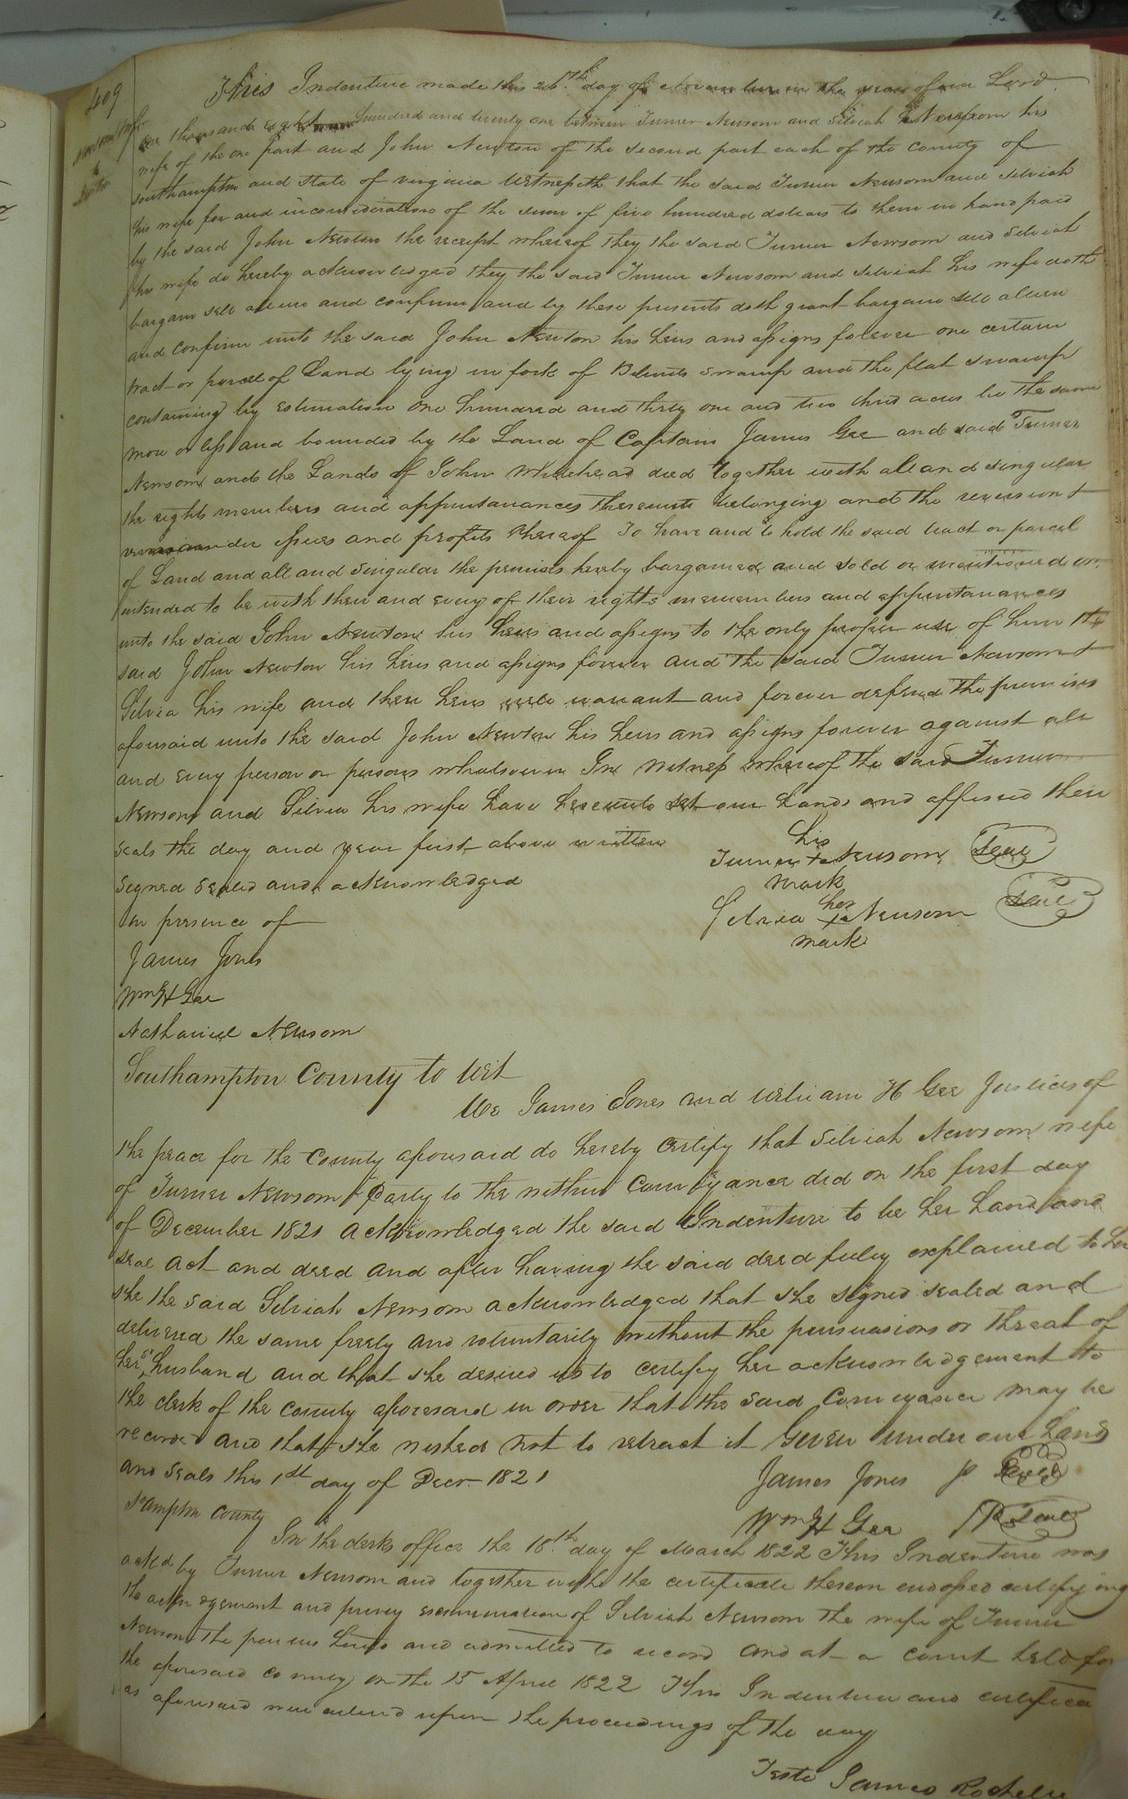 409
Newsom & wife
to
Newton
This Indenture made this 26th day of November in the year of our Lord
one thousand eight hundred and twenty one between Turner Newsom and Silviah Newsom his
wife of the one part and John Newton of the second part each of the County of
Southampton and State of Virginia Witnesseth that the said Turner Newsom and Silviah
his wife for and inconsideration of the sum of five hundred dollars to them in hand paid
by the said John Newton the receipt whereof they the said Turner Newsom and Silviah
his wife do hereby acknowledged they the said Turner Newsom and Silviah his wife doth
bargain sell alien and confirm and by these presents doth grant bargain sell alien
and confirm unto the said John Newton his heirs and assigns forever one certain
tract or parcel of Land lying in fork of Swamp and the flat swamp
containing by estimation one hundred and thirty one and two third acres be the same
more or less and bounded by the Land of Captain James Gee and said Turner
Newsom and the Lands of John Whitehead decd together with all and singular
the rights members and appurtanances thereunto belonging and the reversion &
remainder issues and profits thereof To have and to hold the said tract or parcel
of Land and all and singular the premises hereby bargained and sold or mentioned or
intended to be with their and every of their rights members and appurtanances
unto the said John Newton his heirs and assigns to the only proper use of him the
said John Newton his heirs and assigns forever and the said Turner Newsom &
Silvia his wife and their heirs will warrant and forever defend the premises
aforesaid unto the said John Newton his heirs and assigns forever against all
and every person or persons whatsoever In Witness whereof the said Turner
Newsom and Silvia his wife have hereunto set our hands and affixed their
seals the day and year first above written
Signed Sealed and acknowledged
in presence of
James Jones
Wm H Gee
Nathaniel Newsom
his
Turner + Newsom Seal
mark
her
Silvia + Newsom Seal
mark
Southampton County to Wit
We James Jones and William H Gee Justices of
the peace for the County aforesaid do hereby certify that Silviah Newsom wife
of Turner Newsom Party to the within conveyance did on the first day
of December 1821 acknowledged the said Indenture to be her hand and
seal act and deed and after having the said deed fully explained to her
she the said Silviah Newsom acknowledged that she signed sealed and
delivered the same freely and voluntarily without the persuasions or threat of
her husband and that she desired us to certify her acknowledgement to
the clerk of the county aforesaid in order that the said conveyance may be
recorded and that she wished not to retract it Given under our hands
and seals this 1st day of Decr 1821
James Jones Seal
Wm H Gee Seal
S'ampton County
In the clerks office the 18th day of March 1822 This Indenture was
ackd by Turner Newsom and together with the certificate thereon endorsed certifying
the acknowledgement and privy examination of Silviah Newsom the wife of Turner
Newsom the and admitted to record and at a court held for
the aforesaid county on the 15 April 1822 This Indenture and certificate
as aforesaid were entered upon the proceedings of the day
Teste James Rochelle